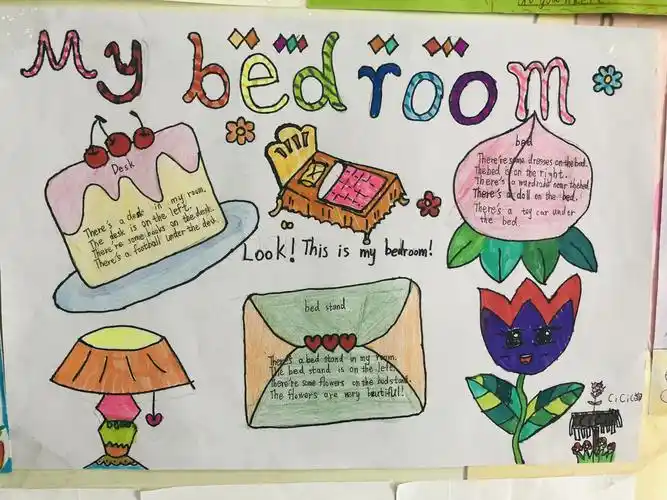 My bedroom
Desk
There's a desk in my room.
The desk is on the left.
There're some books on the desk.
There's a football under the desk.
Look! This is my bedroom!
bed
There're some dresses on the bed.
The bed is on the right.
There's a wardrobe near the bed.
There's a doll on the bed.
There's a toy car under
the bed.
bed stand
There's a bed stand in my room.
The bed stand is on the left.
There're some flowers on the bed stand.
The flowers are very beautiful!